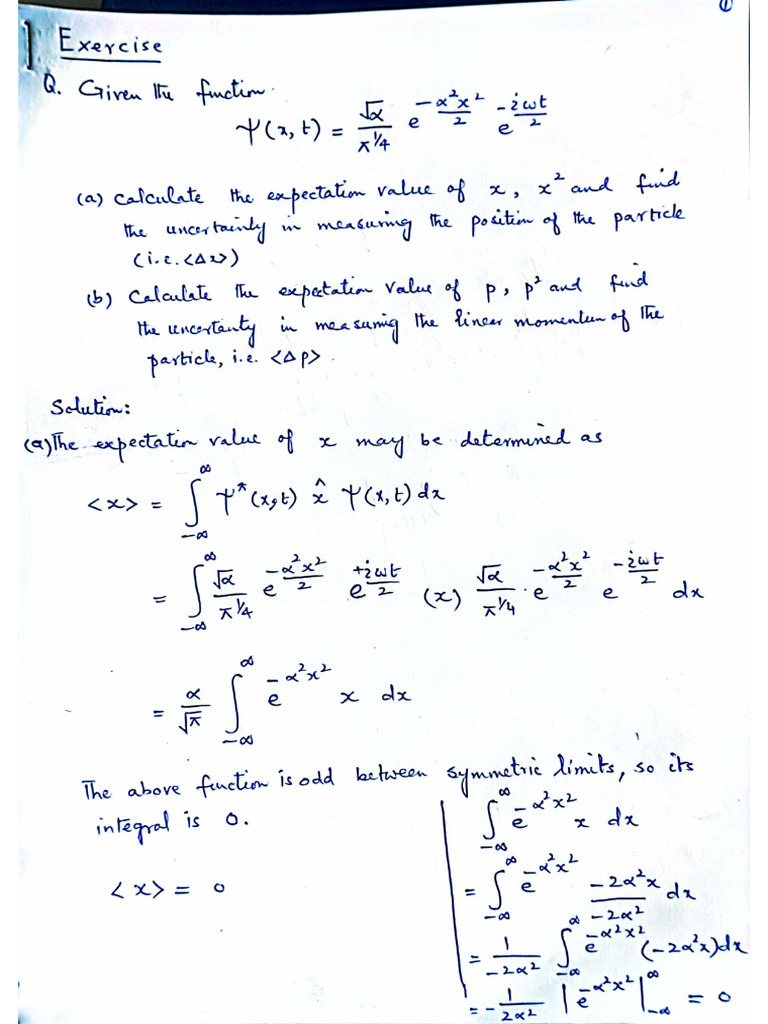 ①
1 Exercise
Q. Given the function.
Ψ(x, t) = √α/π^1/4 e^(-α²x²/2) e^(-iωt/2)
(a) Calculate the expectation value of x, x² and find
the uncertainty in measuring the position of the particle
(i.e. <Δx>)
(b) Calculate the expectation value of p, p² and find
the uncertanty in measuring the linear momentum of the
particle, i.e. <Δp>.
Solution:
(a) The expectation value of x may be determined as
<x> = ∫_{-∞}^{∞} Ψ*(x,t) x̂ Ψ(x,t) dx
= ∫_{-∞}^{∞} √α/π^1/4 e^(-α²x²/2) e^(+iωt/2) (x) √α/π^1/4 · e^(-α²x²/2) e^(-iωt/2) dx
= α/√π ∫_{-∞}^{∞} e^(-α²x²) x dx
The above function is odd between symmetric limits, so its
integral is 0.
<x> = 0
∫_{-∞}^{∞} e^(-α²x²) x dx
= ∫_{-∞}^{∞} e^(-α²x²) (-2α²x)/(-2α²) dx
= 1/(-2α²) ∫_{-∞}^{∞} e^(-α²x²) (-2α²x)dx
= -1/(2α²) |e^(-α²x²)|_{-∞}^{∞} = 0